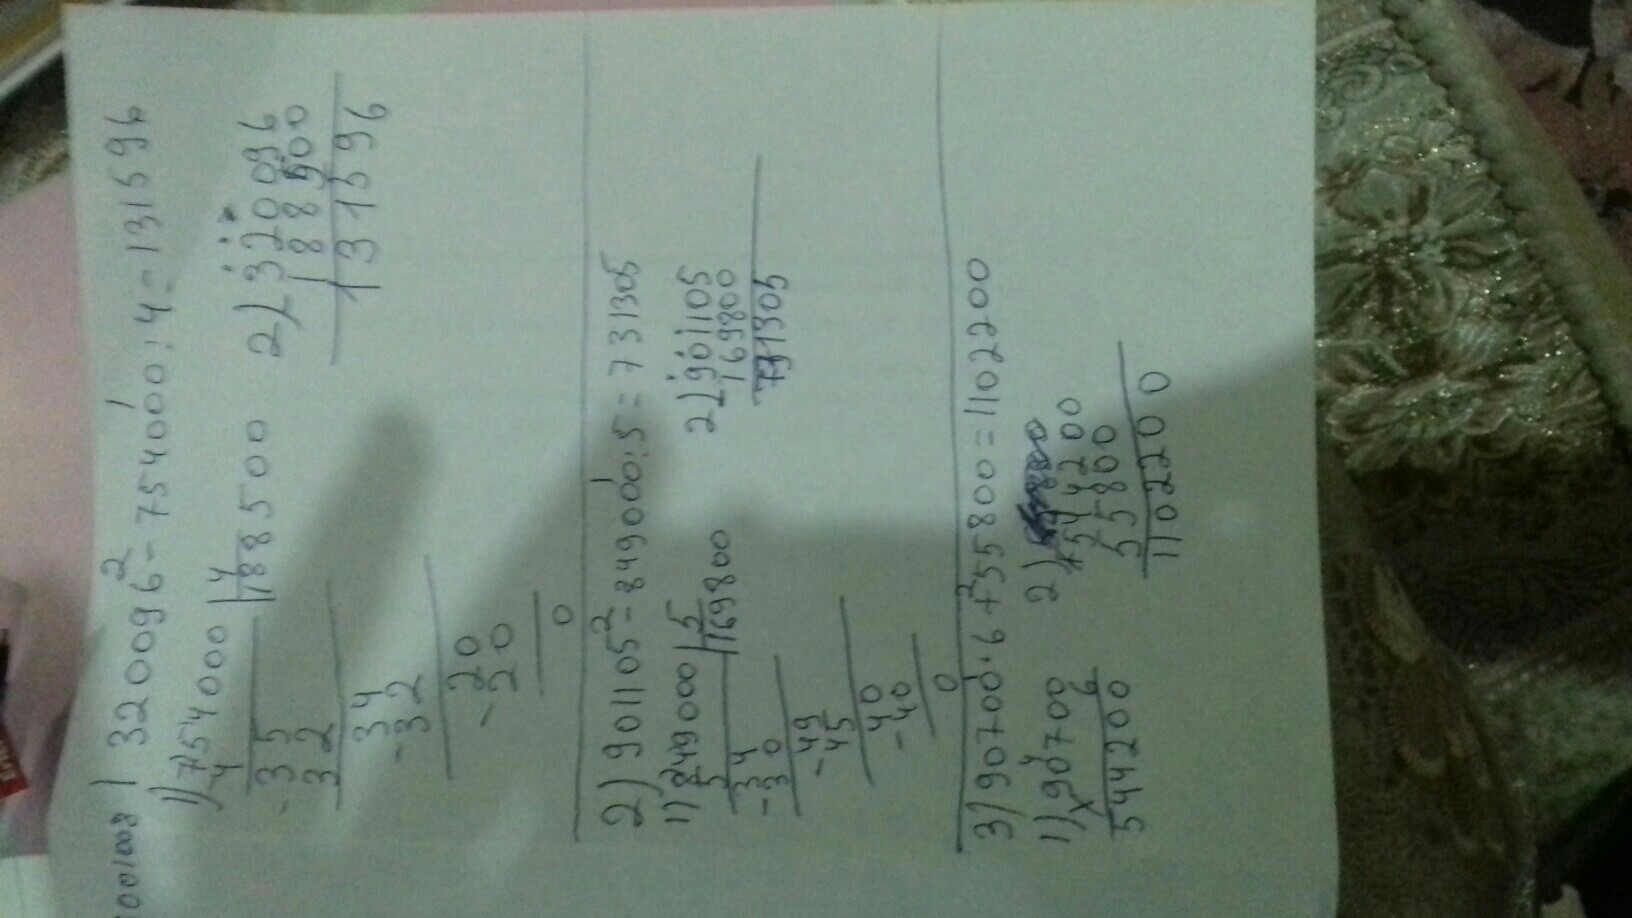 320096 - 754000 : 4 = 131596
1) 754000 | 4
188500
- 4
- 35
32
34
- 32
- 20
20
0
2) 320096
188500
131596
2) 901105 - 849000 : 5 = 731305
1) 849000 | 5
169800
5
- 34
30
- 49
45
- 40
40
0
2) 901105
169800
731305
3) 90700 · 6 + 55800 = 1102200
1) 90700
× 6
544200
2) + 544200
55800
1102200